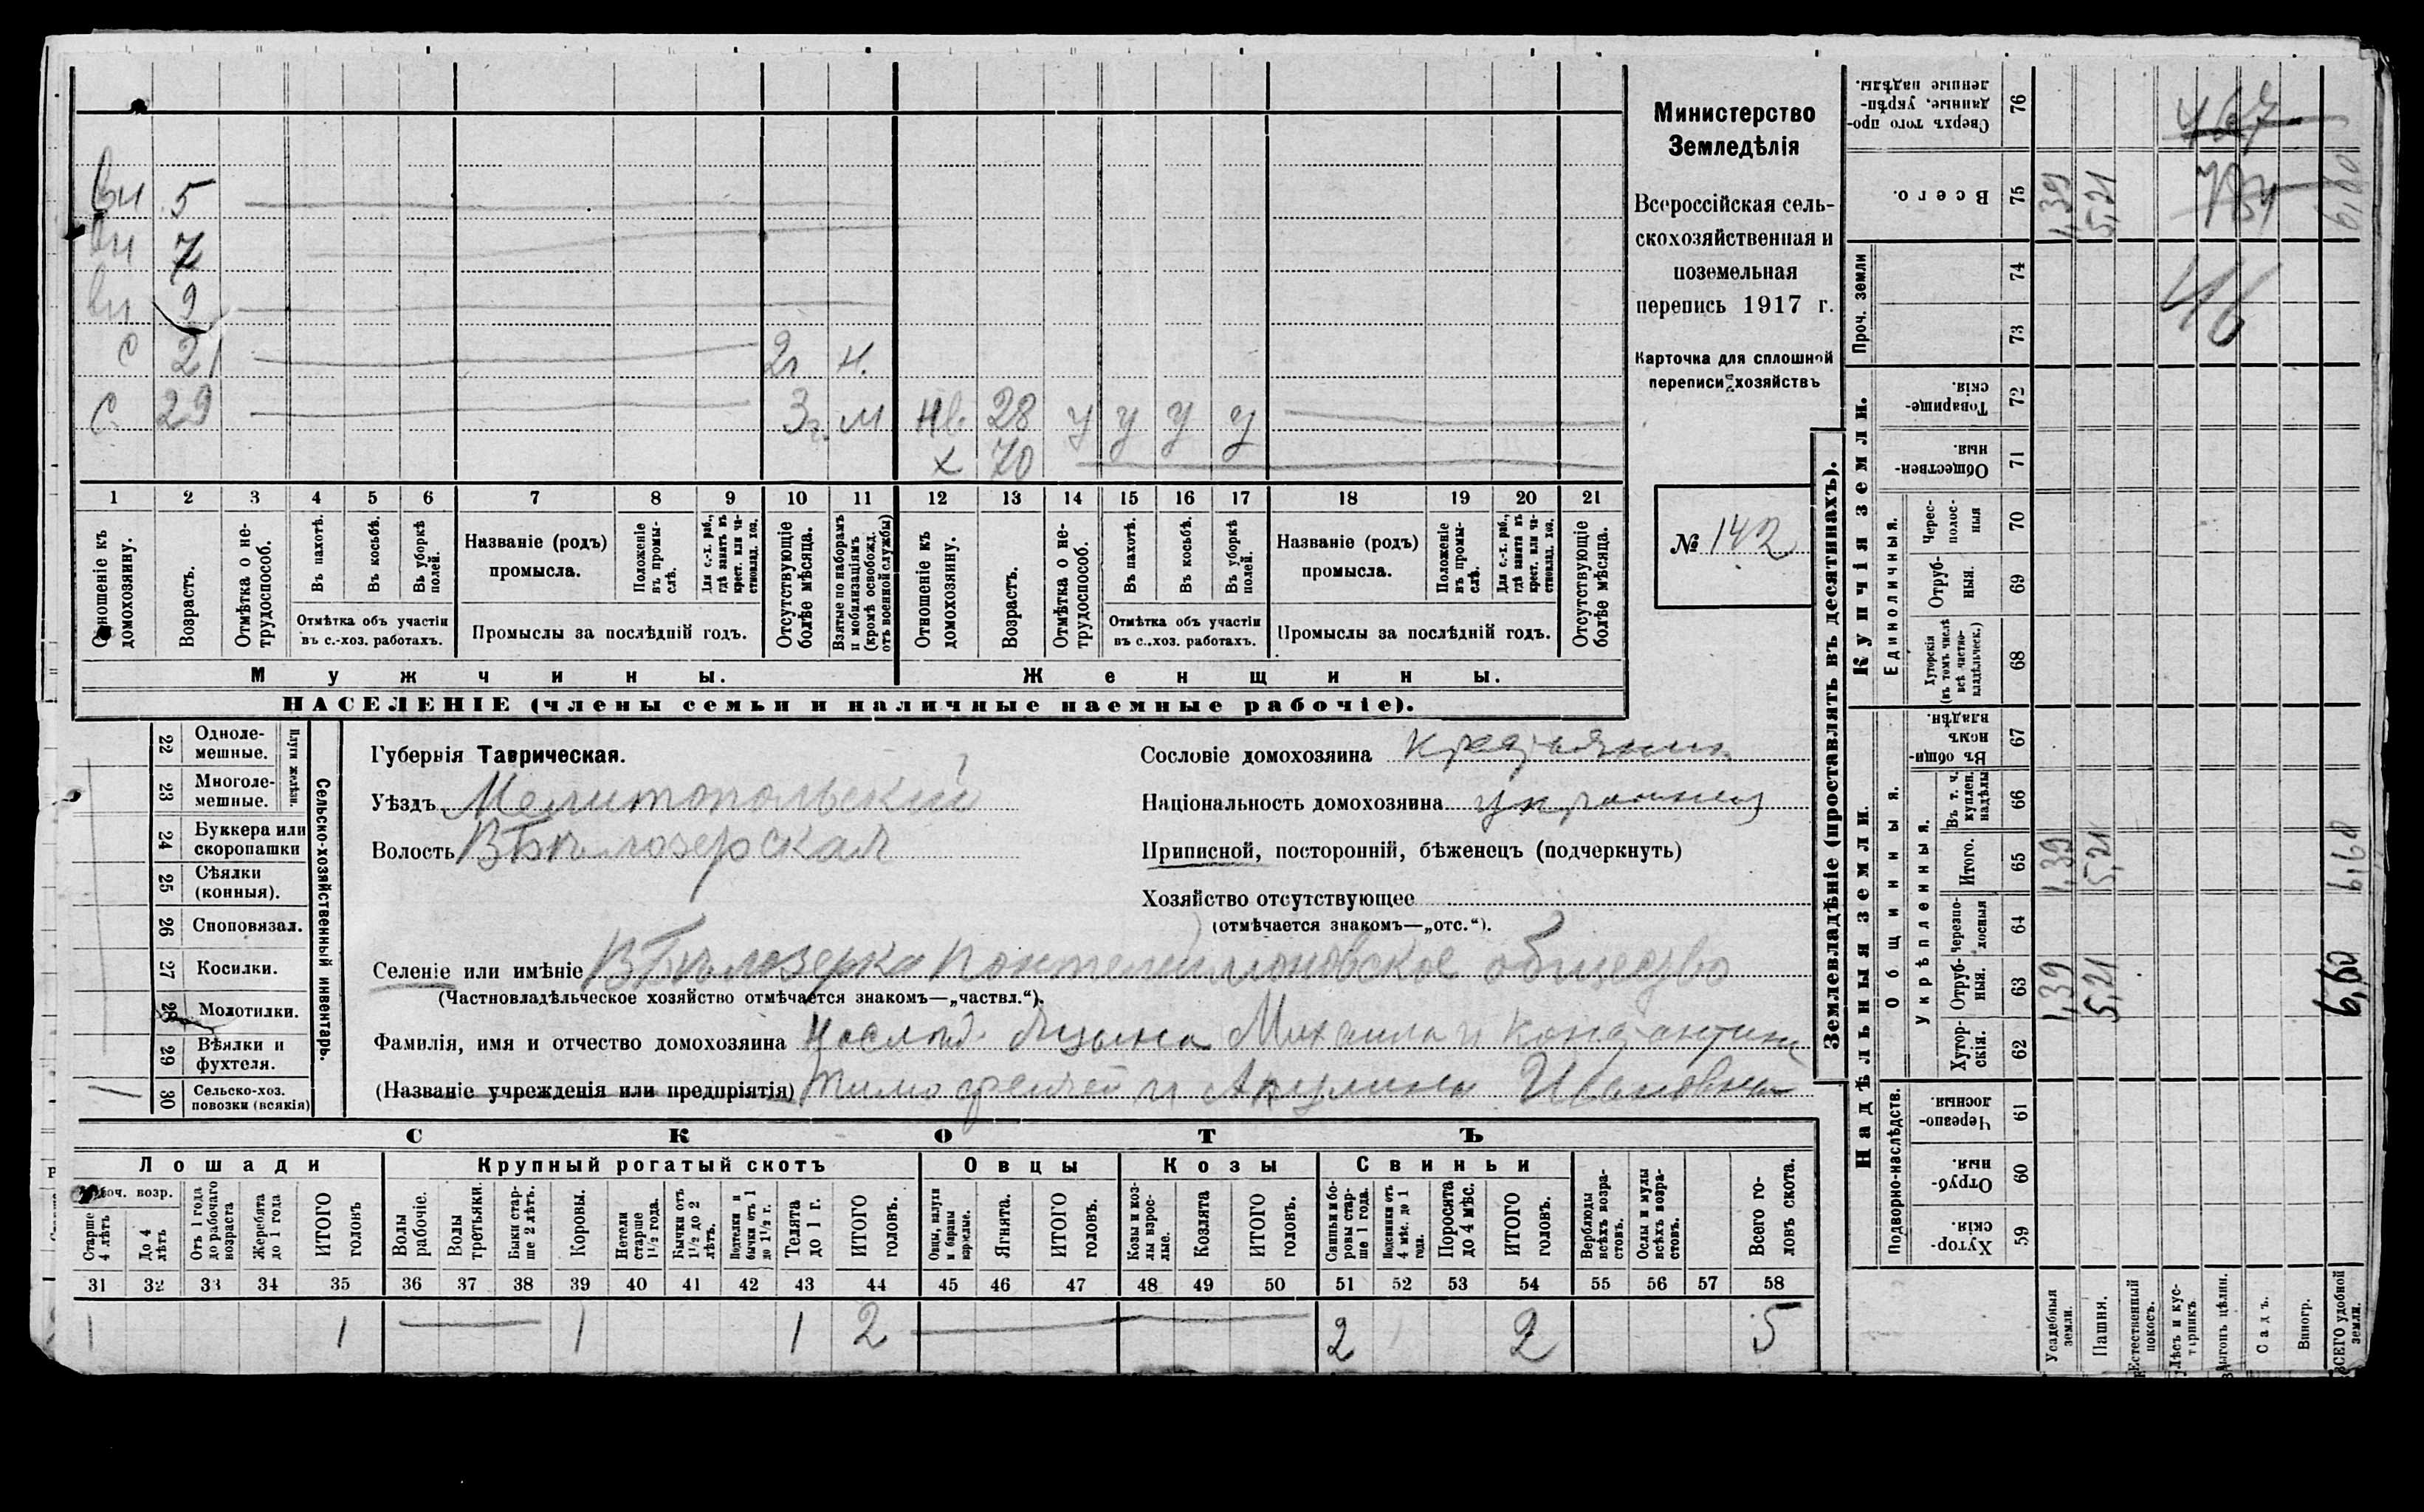 вн 5
вн 7
вн 9
с 21 2г н.
с. 29 3г. м нв. 28 у у у у
х 70
1 2 3 4 5 6 7 8 9 10 11 12 13 14 15 16 17 18 19 20 21
Отношеніе къ домохозяину.
Возрастъ.
Отмѣтка о не-трудоспособ.
Въ пахотѣ.
Въ косьбѣ.
Въ уборкѣ полей.
Отмѣтка объ участіи
въ с.-хоз. работахъ.
Названіе (родъ)
промысла.
Положеніе въ промы-слѣ.
Для с.-х. раб., гдѣ занятъ въ крест. или ча-стновлад. хоз.
Промыслы за послѣдній годъ.
Отсутствующіе болѣе мѣсяца.
Взятые по наборамъ и мобилизаціямъ (кромѣ освобожд. отъ военной службы)
Отношеніе къ домохозяину.
Возрастъ.
Отмѣтка о не-трудоспособ.
Въ пахотѣ.
Въ косьбѣ.
Въ уборкѣ полей.
Отмѣтка объ участіи
въ с.-хоз. работахъ.
Названіе (родъ)
промысла.
Положеніе въ промы-слѣ.
Для с.-х. раб., гдѣ занята въ крест. или ча-стновлад. хоз.
Промыслы за послѣдній годъ.
Отсутствующіе болѣе мѣсяца.
Мужчины. Женщины.
НАСЕЛЕНІЕ (члены семьи и наличные наемные рабочіе).
Министерство
Земледѣлія
Всероссійская сель-
скохозяйственная и
поземельная
перепись 1917 г.
Карточка для сплошной
переписи хозяйствъ
№ 142
22 Одноле-мешные.
23 Многоле-мешные.
Плуги желѣзн.
24 Буккера или скоропашки
25 Сѣялки (конныя).
26 Сноповязал.
27 Косилки.
28 Молотилки.
29 Вѣялки и фухтеля.
30 Сельско-хоз. повозки (всякія)
Сельско-хозяйственный инвентарь.
Губернія Таврическая.
Уѣздъ Мелитопольскій
Волость В Бѣлозерская
Сословіе домохозяина Крестьянин
Національность домохозяина украинец
Приписной, посторонній, бѣженецъ (подчеркнуть)
Хозяйство отсутствующее
(отмѣчается знакомъ—„отс.“).
Селеніе или имѣніе В Бѣлозерка Пантелеймоновское общество
(Частновладѣльческое хозяйство отмѣчается знакомъ—„частвл.“).
Фамилія, имя и отчество домохозяина Михаила и Константина
(Названіе учрежденія или предпріятія) Тимофеевич и Акулина Ивановна
СКОТЪ
Лошади Крупный рогатый скотъ Овцы Козы Свиньи
Рабоч. возр.
Старше 4 лѣтъ
До 4 лѣтъ
Отъ 1 года до рабочаго возраста
Жеребята до 1 года
ИТОГО головъ
Волы рабочіе.
Волы третьяки.
Быки стар-ше 2 лѣтъ.
Коровы.
Нетели старше 1½ года.
Бычки отъ 1½ до 2 лѣтъ.
Подтелки и бычки отъ 1 до 1½ г.
Телята до 1 г.
ИТОГО головъ.
Овцы, валухи и бараны взрослые.
Ягнята.
ИТОГО головъ.
Козы и коз-лы взрос-лые.
Козлята
ИТОГО головъ.
Свиньи и бо-ровы стар-ше 1 года.
Подсвинки отъ 4 мѣс. до 1 года.
Поросята до 4 мѣс.
ИТОГО головъ.
Верблюды всѣхъ возра-стовъ.
Ослы и мулы всѣхъ возра-стовъ.
Всего го-ловъ скота.
31 32 33 34 35 36 37 38 39 40 41 42 43 44 45 46 47 48 49 50 51 52 53 54 55 56 57 58
1 1 1 1 2 2 2 5
Землевладѣніе (проставлять въ десятинахъ).
Купчія земли.
Надѣльныя земли.
Проч. земли
Единоличныя.
Общинныя.
Укрѣпленныя.
Подворно-наслѣдств.
Сверхъ того про-данные, укрѣп-ленные надѣлы. 76
Всего. 75 1,39 5,21 6,60
74
73 46
Товарище-скія. 72
Обществен-ныя. 71
Черес-полос-ныя 70
Отруб-ныя. 69
Хуторскія (въ томъ числѣ всѣ частно-владѣльческ.) 68
Въ общи-номъ владѣн. 67
Въ т. ч. куплен. надѣлы 66
Итого. 65 1,39 5,21 6,60
Черезпо-лосныя 64
Отруб-ныя. 63 1,39 5,21 6,60
Хутор-скія. 62
Черезпо-лосныя. 61
Отруб-ныя. 60
Хутор-скія. 59
Усадебныя земли.
Пашня.
Естественный покосъ.
Лѣсъ и кус-тарникъ
Выгонъ цѣлин.
Садъ.
Виногр.
ВСЕГО удобной земли.